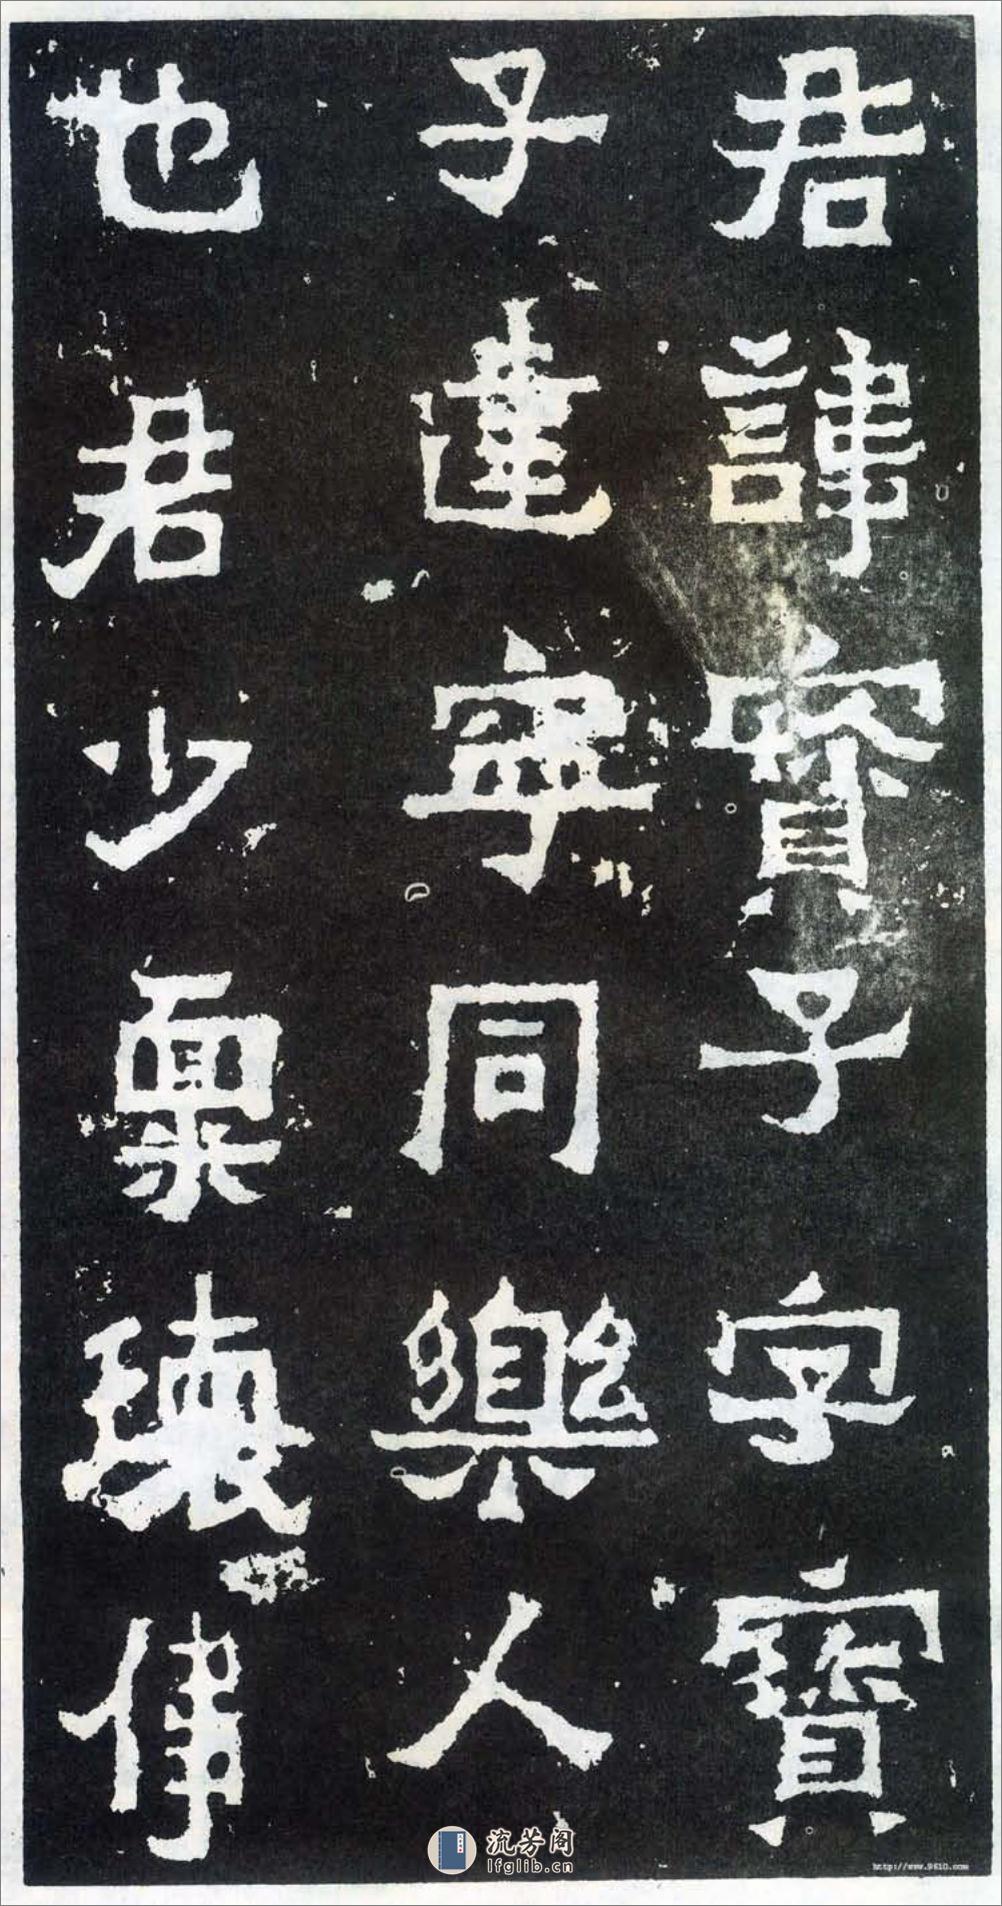 君諱寶子字寶
子建寧同樂人
也君少稟瓌偉
流芳阁
lfglib.cn
http://www.9610.com